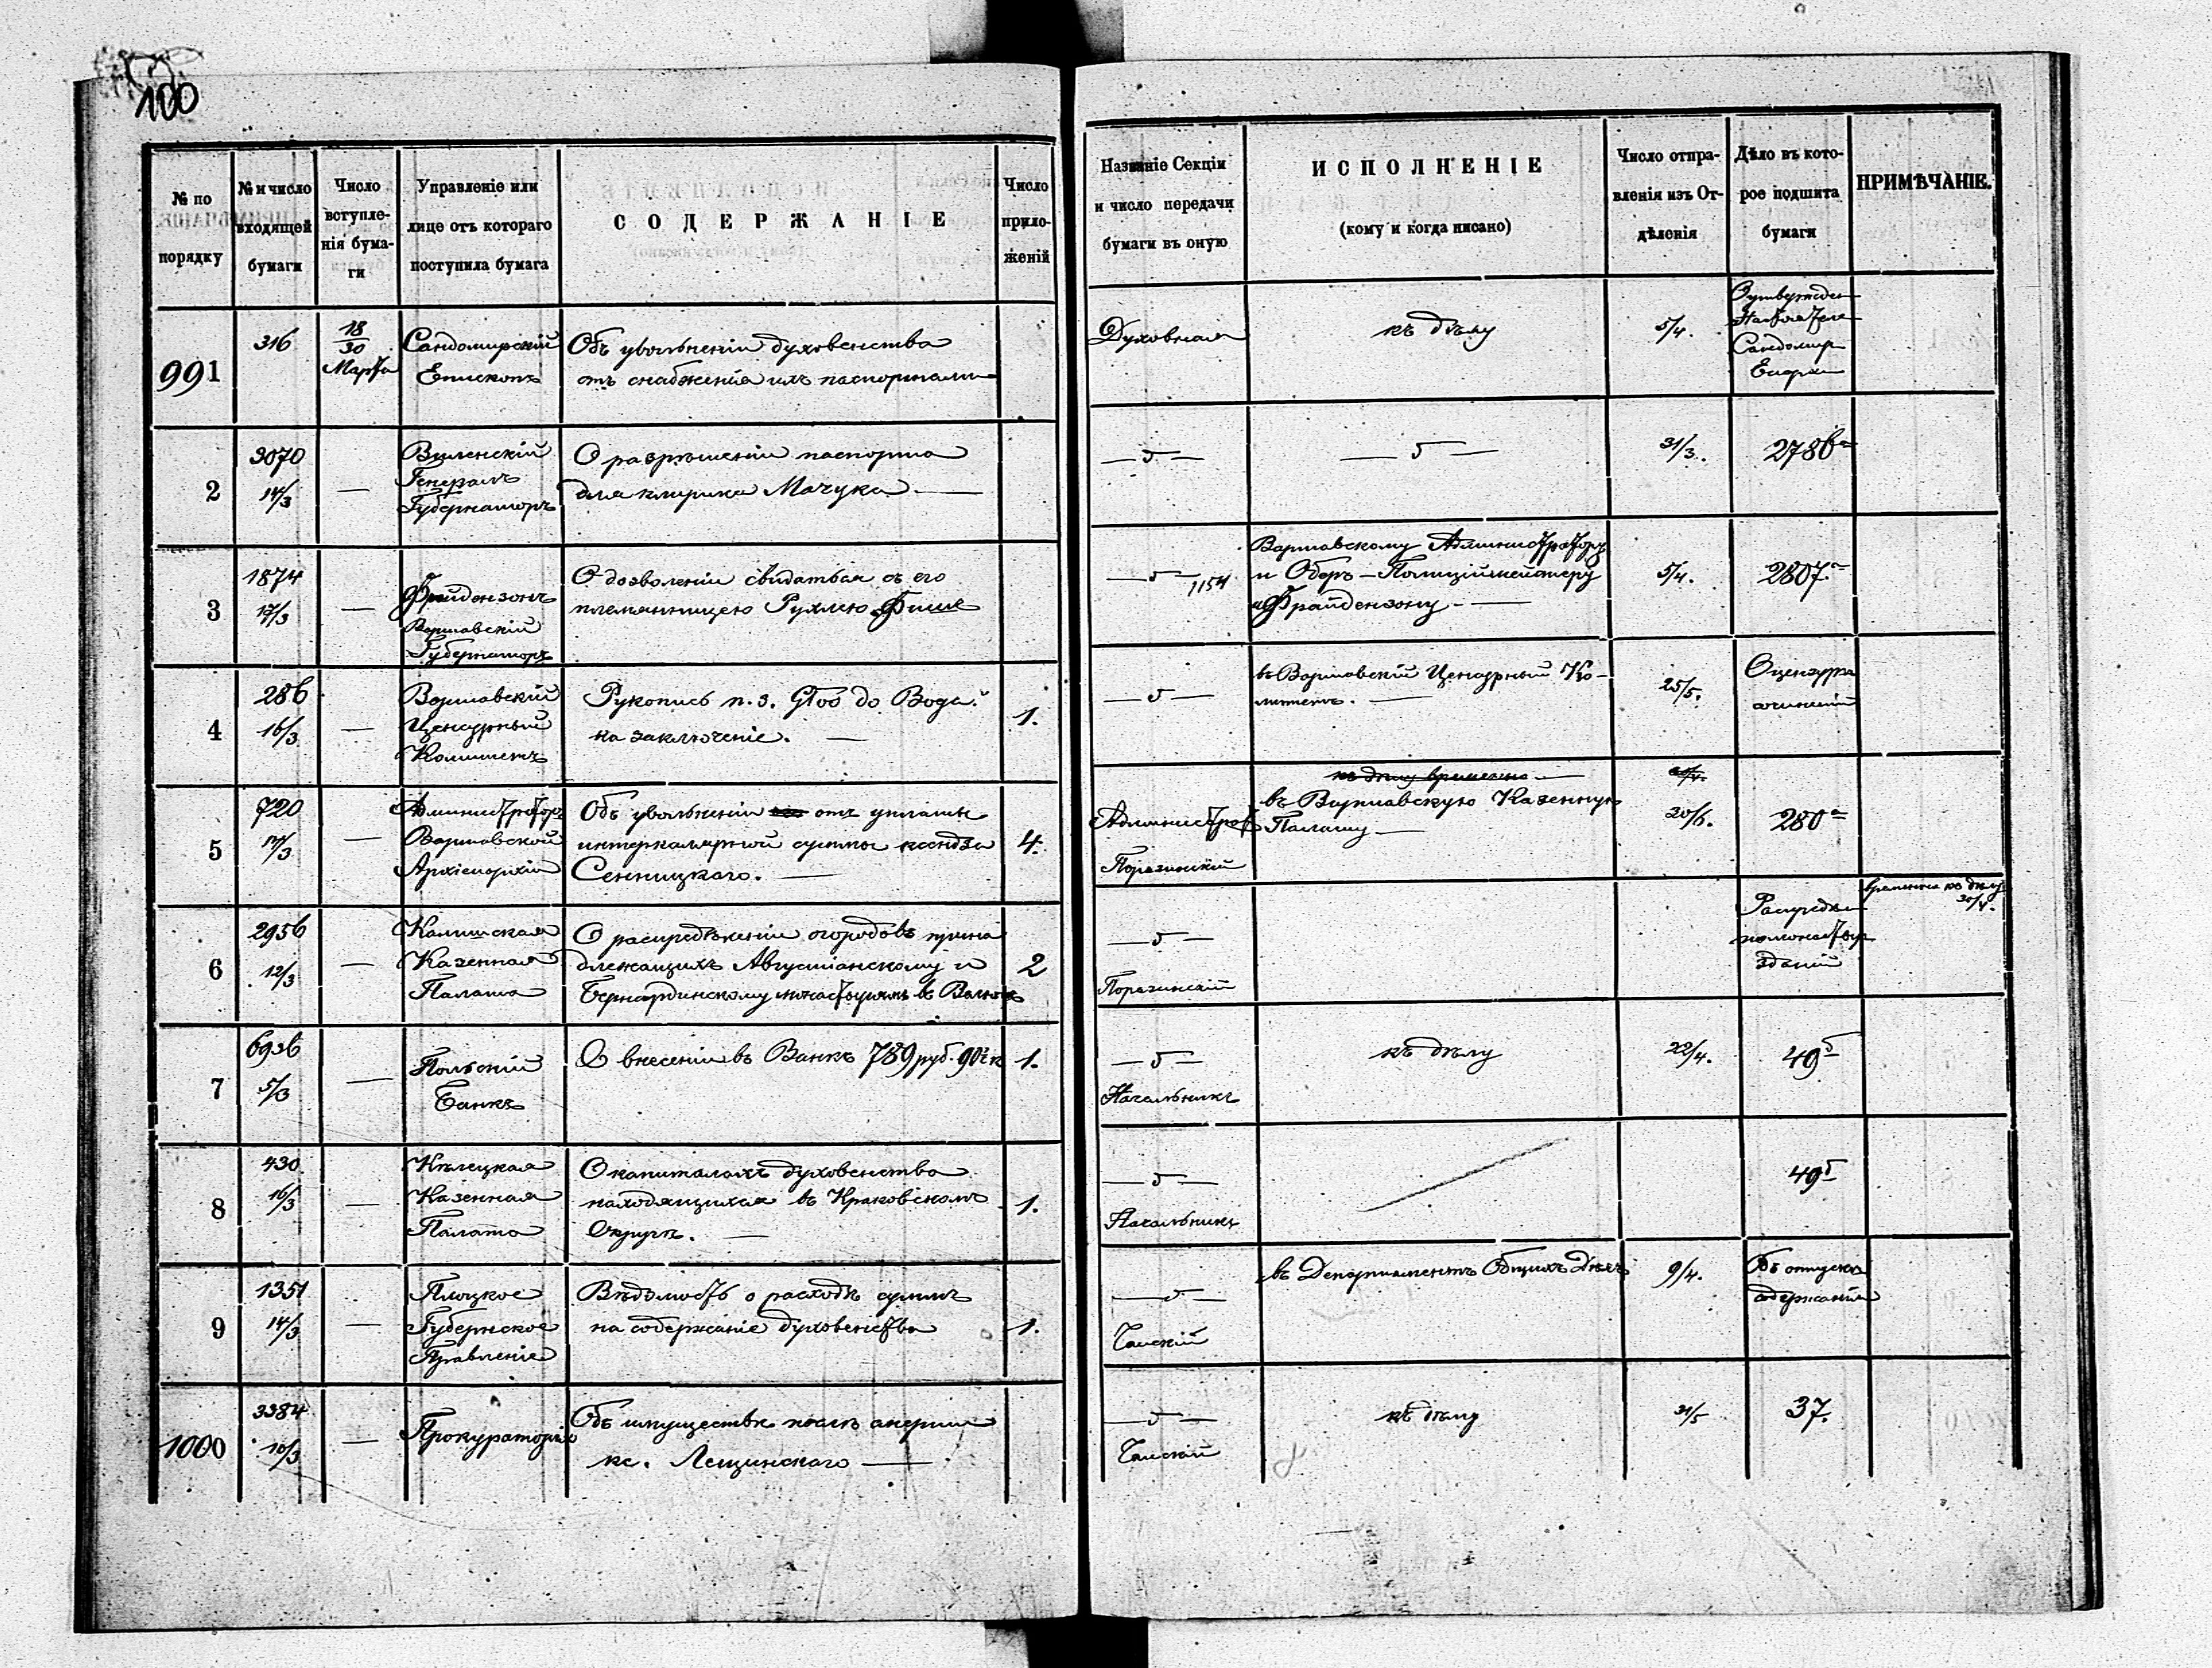 100
№ по порядку
№ и число входящей бумаги
Число вступле-нія бума-ги
Управленіе или лице отъ котораго поступила бумага
СОДЕРЖАНІЕ
Число прило-женій
Названіе Секціи и число передачи бумаги въ оную
ИСПОЛНЕНІЕ
(кому и когда писано)
Число отпра-вленія изъ От-дѣленія
Дѣло въ кото-рое подшита бумаги
ПРИМѢЧАНІЕ.
991
316
18/30 Марта
Сандомирскій
Епископъ
Объ увольненіи духовенства
отъ снабженія ихъ паспортами
Духовная
къ дѣлу
5/4.
Сандомир
2
3070
14/3
—
Виленскій
Генералъ
Губернаторъ
О разрѣшеніи паспорта
для клирика Мачука —
— „ —
— „ —
31/3.
278
3
1874
17/3
—
Фрайдензонъ
Варшавскій
Губернаторъ
О дозволеніи свидаться съ его
племянницею Рухлею Фише
— „ —
1154
Варшавскому Администратору
и Оберъ-Полиційместеру
и Фрайдензону. —
5/4.
2807.
4
286
16/3
—
Варшавскій
Ценсурный
Комитетъ
Рукопись п. з. Głos do Boga.
на заключеніе. —
1.
— „ —
въ Варшавскій Ценсурный Ко-
митетъ. —
25/5.
О цензурѣ
5
720
17/3
—
Администраторъ
Варшавской
Архіепархіи
Объ увольненіи отъ уплаты
интеркалярной суммы ксендза
Сенницкаго. —
4.
Администрат
Поразинскій
къ дѣлу временно —
въ Варшавскую Казенную
Палату —
20/6.
280
6
2956
12/3
—
Калишская
Казенная
Палата
О распредѣленіи огородовъ прина
длежащихъ Августіанскому и
Бернардинскому монастырямъ въ
2
— „ —
Поразинскій
Распредѣл
зданій
временно къ дѣлу
30/4.
7
6936
5/3
—
Польскій
Банкъ
О внесеніи въ Банкъ 789 руб. 90½ к
1.
— „ —
Начальникъ
къ дѣлу
22/4.
49
8
430
16/3
—
Кѣлецкая
Казенная
Палата
О капиталахъ духовенства
находящихся въ Краковскомъ
Округѣ. —
1.
— „ —
Начальникъ
49
9
1351
14/3
—
Плоцкое
Губернское
Правленіе
Вѣдомость о расходѣ суммъ
на содержаніе духовенства
1.
— „ —
въ Департаментъ Общихъ Дѣлъ
9/4.
Объ отпускѣ
содержанія
1000
3384
10/3
—
Прокураторія
Объ имуществѣ послѣ
кс. Лещинскаго —
— „ —
къ дѣлу
21/5
37.